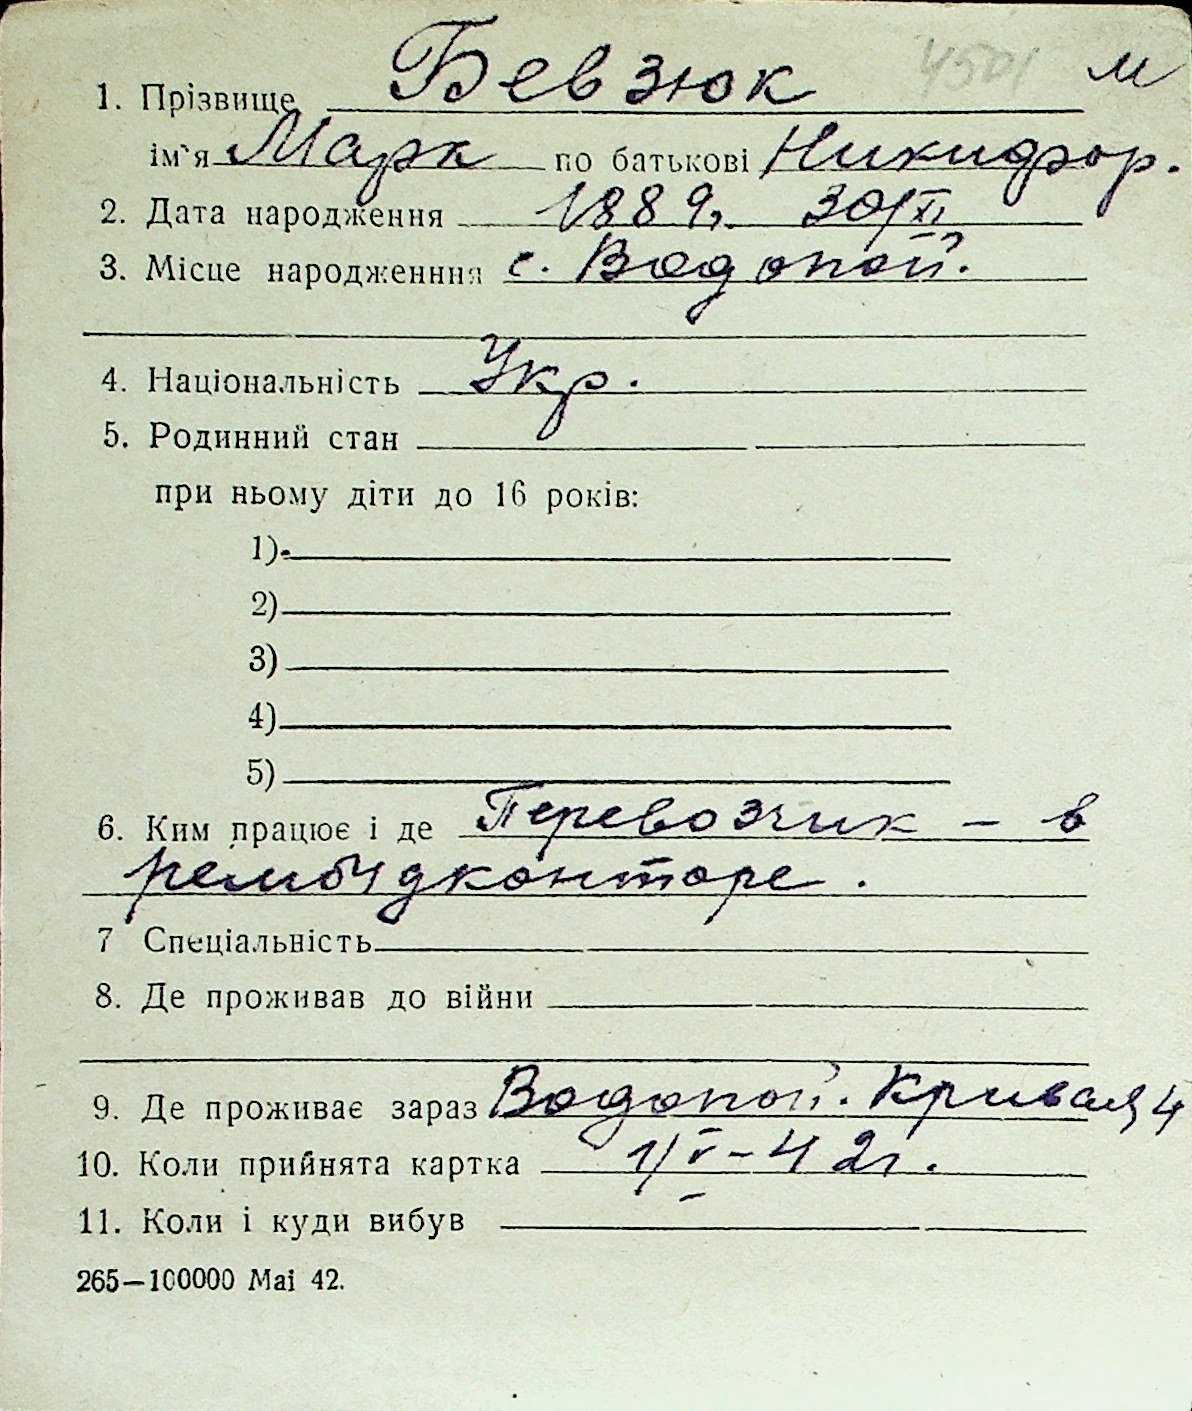 4501 м
1. Прізвище Бевзюк
ім'я Марк по батькові Никифор.
2. Дата народження 1889г. 30/XI
3. Місце народженння с. Водопой.
4. Національність Укр.
5. Родинний стан
при ньому діти до 16 років:
1)
2)
3)
4)
5)
6. Ким працює і де Перевозчик – в
рембудконторе.
7 Спеціальність
8. Де проживав до війни
9. Де проживає зараз Водопой. Кривая, 4
10. Коли прийнята картка 1/V – 42г.
11. Коли і куди вибув
265—100000 Mai 42.